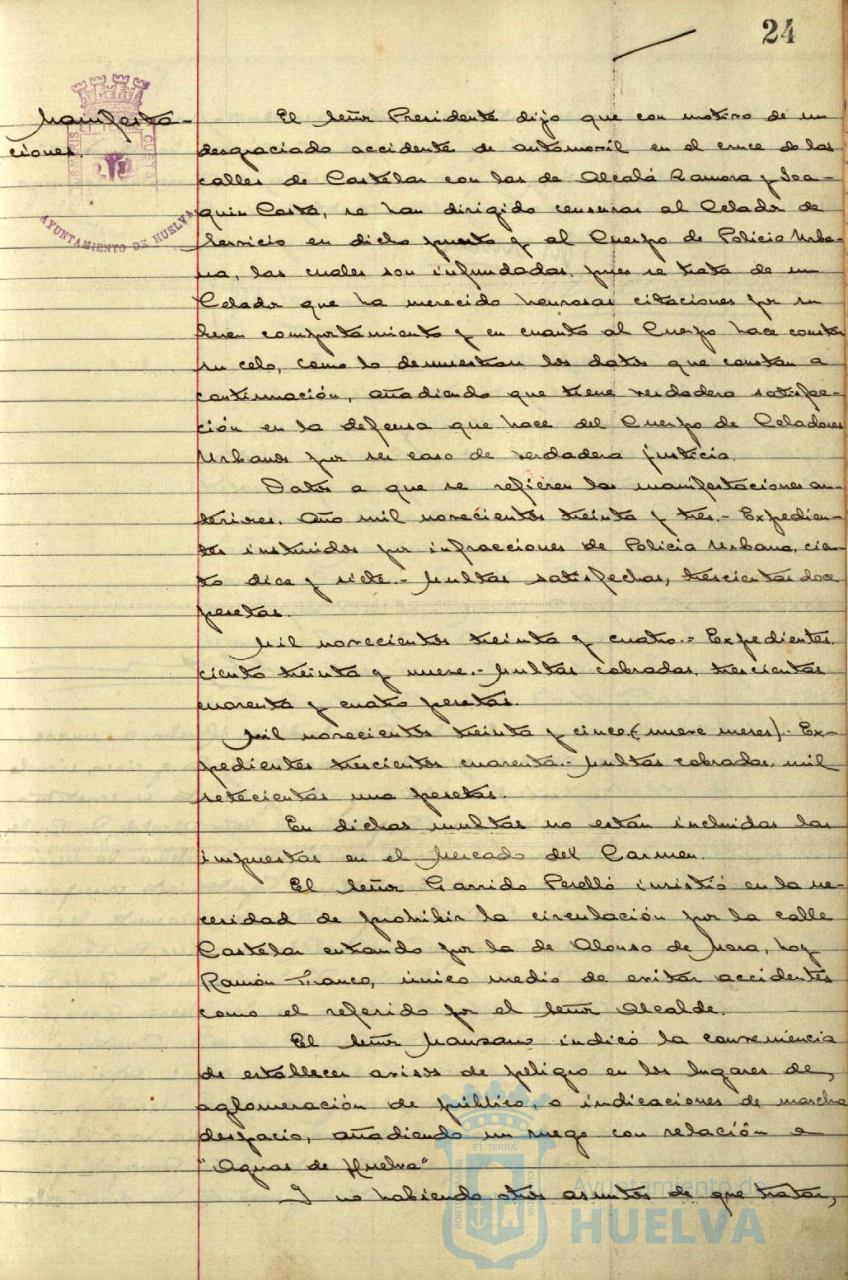 24
Manifesta-
ciones.
El Señor Presidente dijo que con motivo de un
desgraciado accidente de automovil en el cruce de las
calles de Castelar con las de Alcalá Zamora y Joa-
quin Costa, se han dirigido censuras al Celador de
servicio en dicho puesto y al Cuerpo de Policia Urba-
na, las cuales son infundadas, pues se trata de un
Celador que ha merecido honrosas citaciones por su
buen comportamiento y en cuanto al Cuerpo hace constar
su celo, como lo demuestran los datos que constan a
continuación, añadiendo que tiene verdadera satisfac-
ción en la defensa que hace del Cuerpo de Celadores
Urbanos por ser caso de verdadera justicia.
Datos a que se refieren las manifestaciones an-
teriores. Año mil novecientos treinta y tres.- Expedien-
tes instruidos por infracciones de Policia Urbana, cien-
to diez y siete.- Multas satisfechas, trescientas doce
pesetas.
Mil novecientos treinta y cuatro.- Expedientes,
ciento treinta y nueve.- Multas cobradas, trescientas
cuarenta y cuatro pesetas.
Mil novecientos treinta y cinco (nueve meses).- Ex-
pedientes trescientos cuarenta.- Multas cobradas, mil
setecientas una pesetas.
En dichas multas no están incluidas las
impuestas en el Mercado del Carmen.
El Señor Garrido Perelló insistió en la ne-
cesidad de prohibir la circulación por la calle
Castelar entrando por la de Alonso de Mora, hoy
Ramón Franco, único medio de evitar accidentes
como el referido por el Señor Alcalde.
El Señor Manzano indicó la conveniencia
de establecer avisos de peligro en los lugares de
aglomeración de público, o indicaciones de marcha
despacio, añadiendo un ruego con relación a
"Aguas de Huelva"
Y no habiendo otros asuntos de que tratar,
AYUNTAMIENTO DE HUELVA
Ayuntamiento de
HUELVA